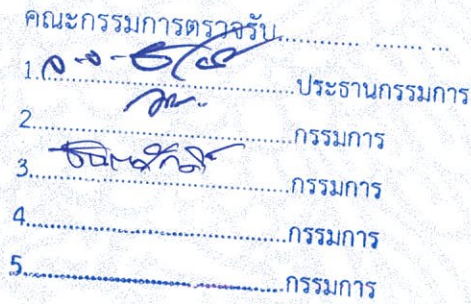 คณะกรรมการตรวจรับ........... ....... ...
1. ...........................ประธานกรรมการ
2.......................................กรรมการ
3.......................................กรรมการ
4.......................................กรรมการ
5.......................................กรรมการ